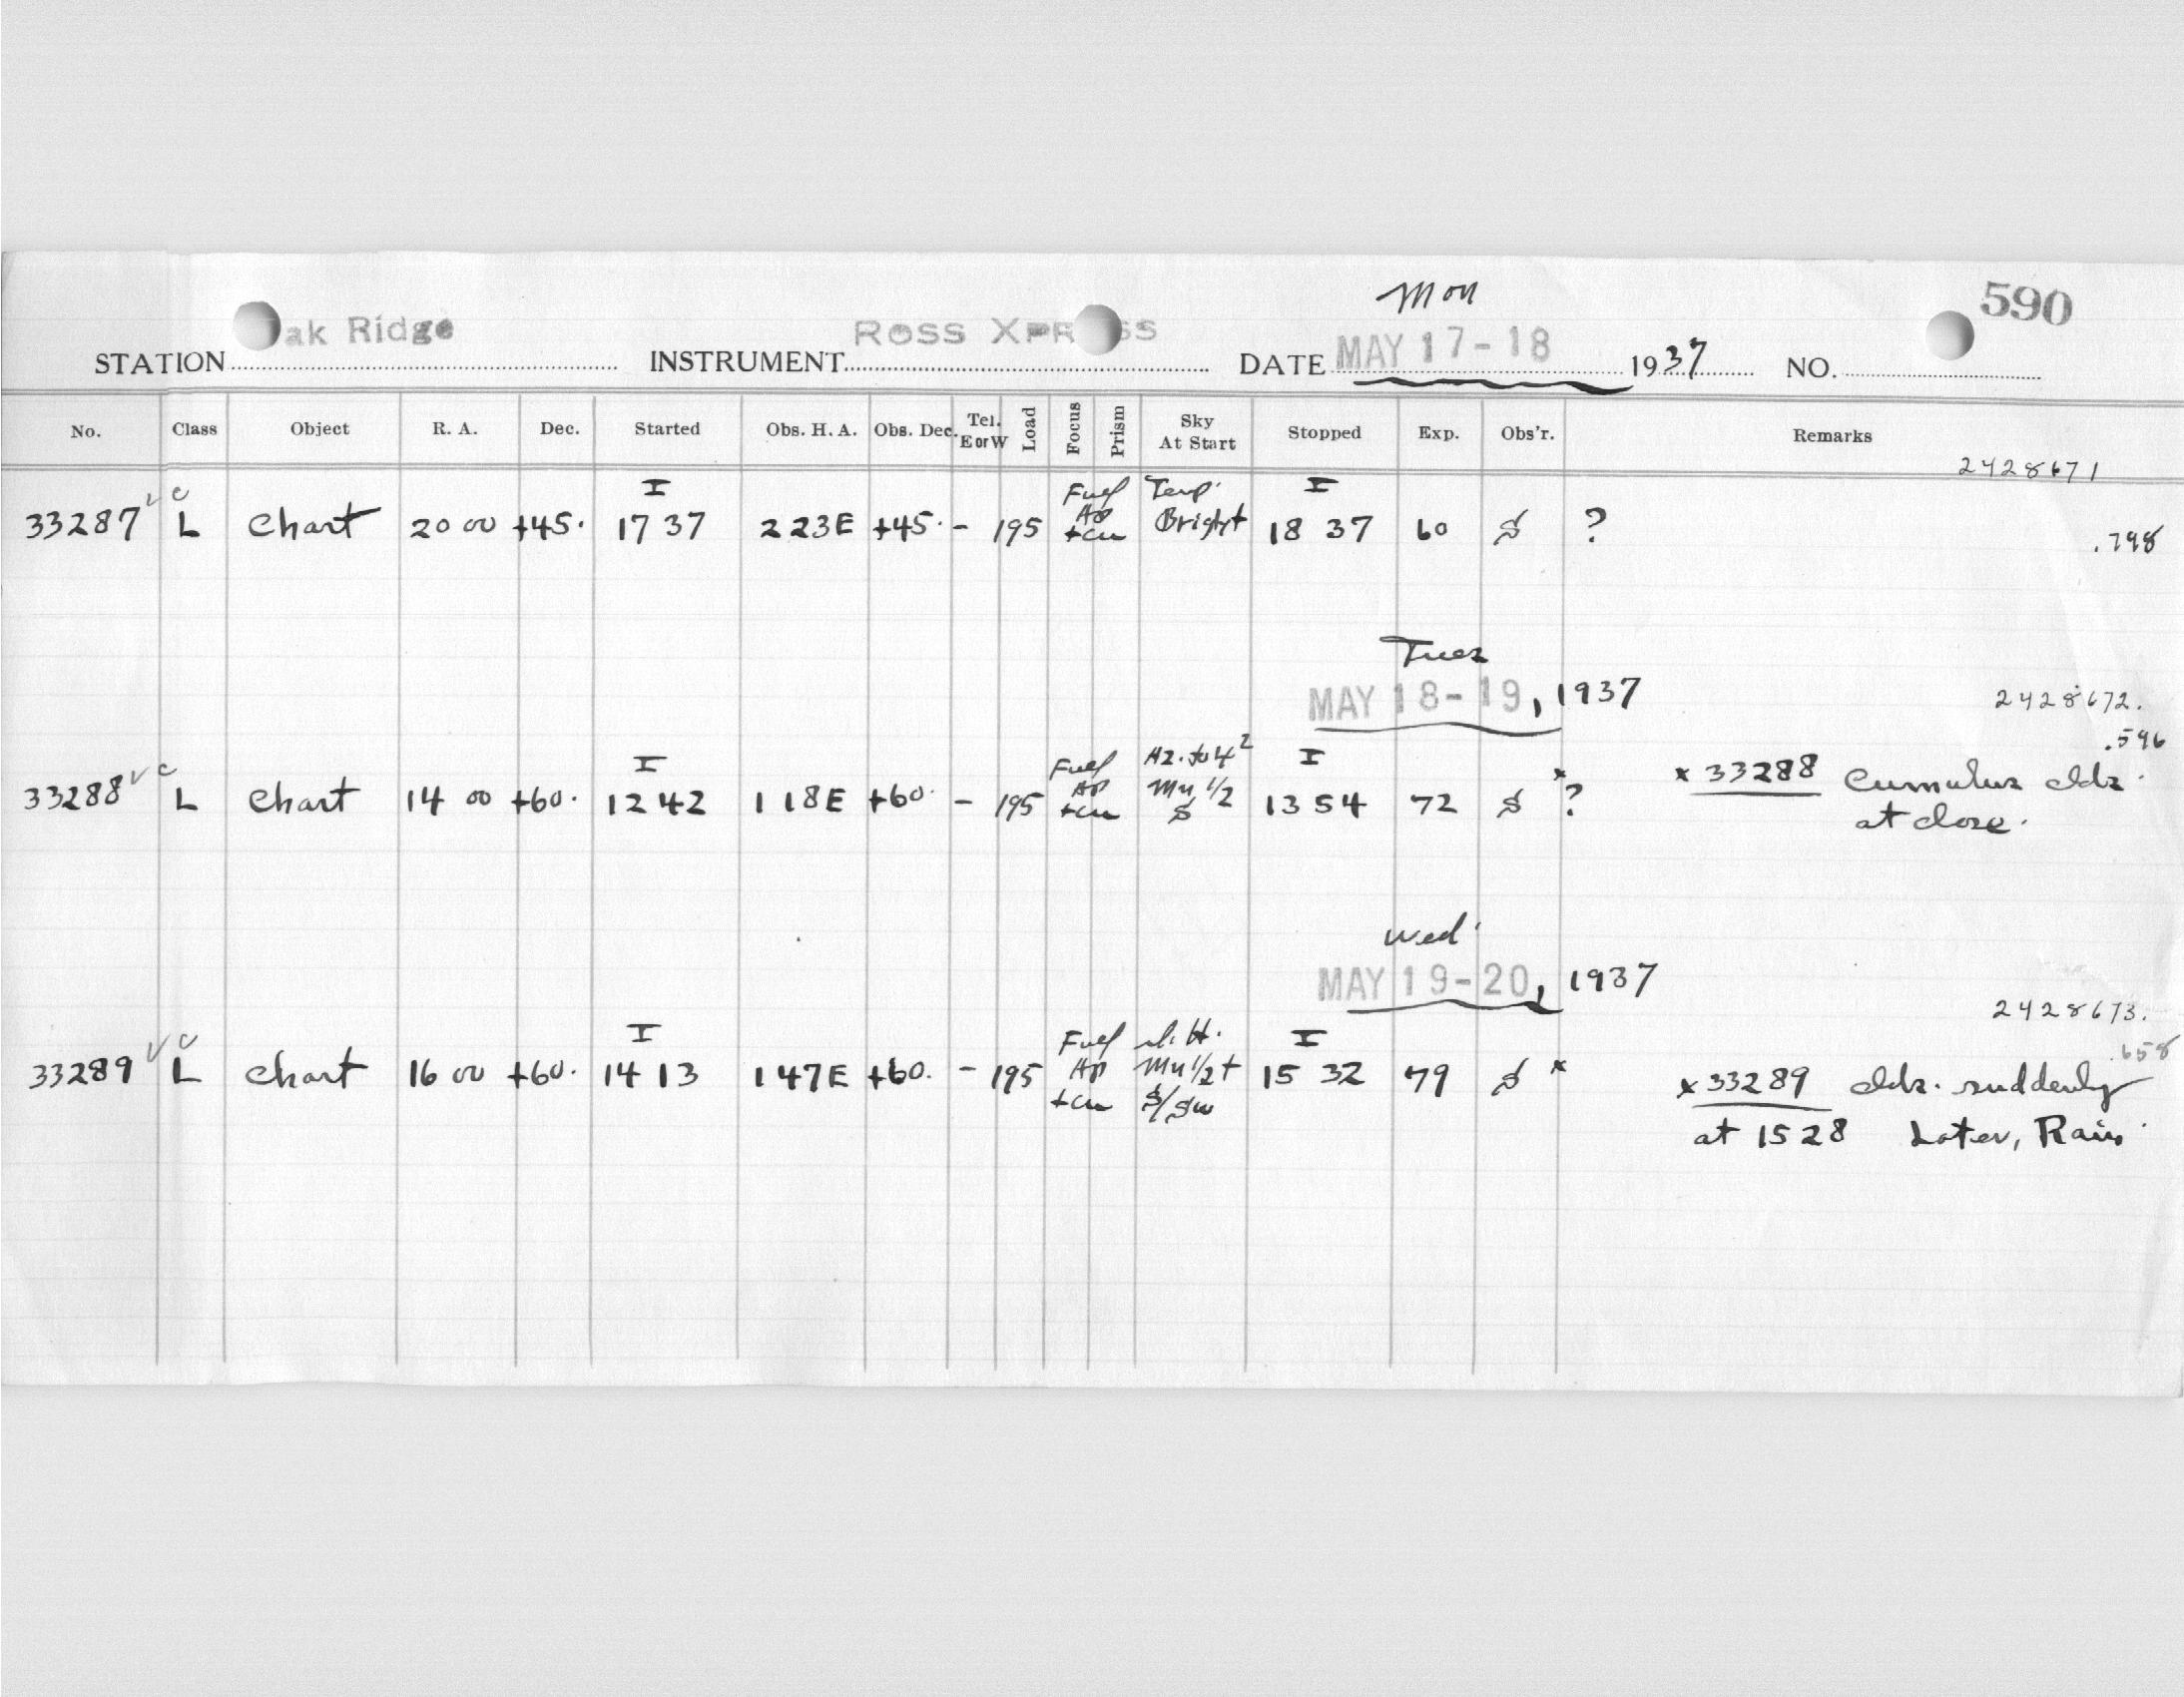 Mon
590
ak Ridge ROSS XPR SS MAY 17-18
STATION INSTRUMENT DATE 1937 NO.
No. Class Object R. A. Dec. Started Obs. H. A. Obs. Dec. Tel. E or W Load Focus Prism Sky At Start Stopped Exp. Obs'r. Remarks
2428671
c I Fuel Temp. I
33287 L Chart 20 00 +45. 17 37 223E +45. - 195 +cu Bright 18 37 60 S ?
.798
Tues
MAY 18-19, 1937 2428672.
.596
c I Fuel Hz. to 4² I
33288 L Chart 14 00 +60. 12 42 118E +60. - 195 +cu Mn 1/2 S 13 54 72 S x? x 33288 Cumulus clds.
at close.
Wed.
MAY 19-20, 1937
2428673.
.658
c I Fuel I
33289 L Chart 16 00 +60. 14 13 147E +60. - 195 +cu Mn 1/2+ S/SW 15 32 79 S x x 33289 clds. suddenly
at 1528 Later, Rain.